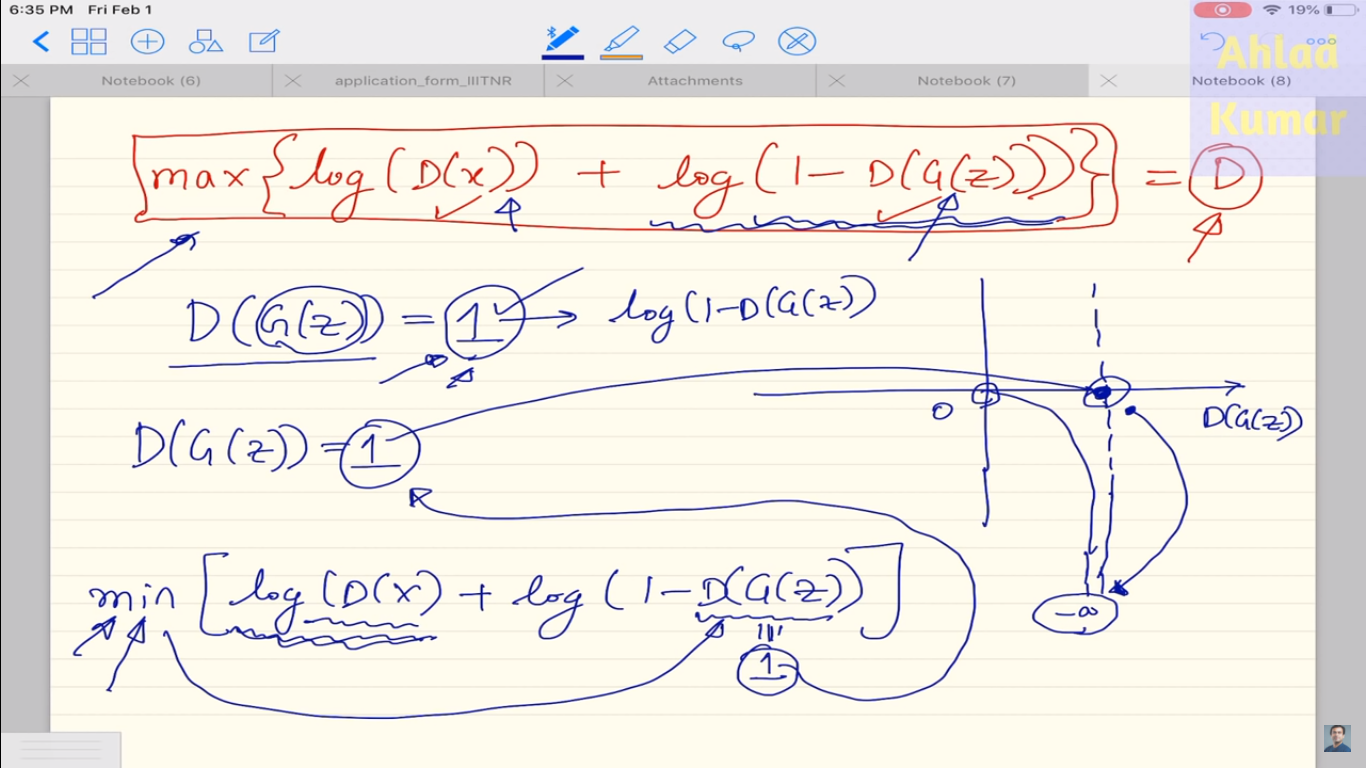 6:35 PM Fri Feb 1
19%
Notebook (6)
application_form_IIITNR
Attachments
Notebook (7)
Notebook (8)
Ahlad
Kumar
max{log(D(x)) + log(1-D(G(z)))} = D
D(G(z)) = 1 → log(1-D(G(z))
0
D(G(z))
D(G(z)) = 1
-∞
min [log(D(x) + log(1-D(G(z))]
1